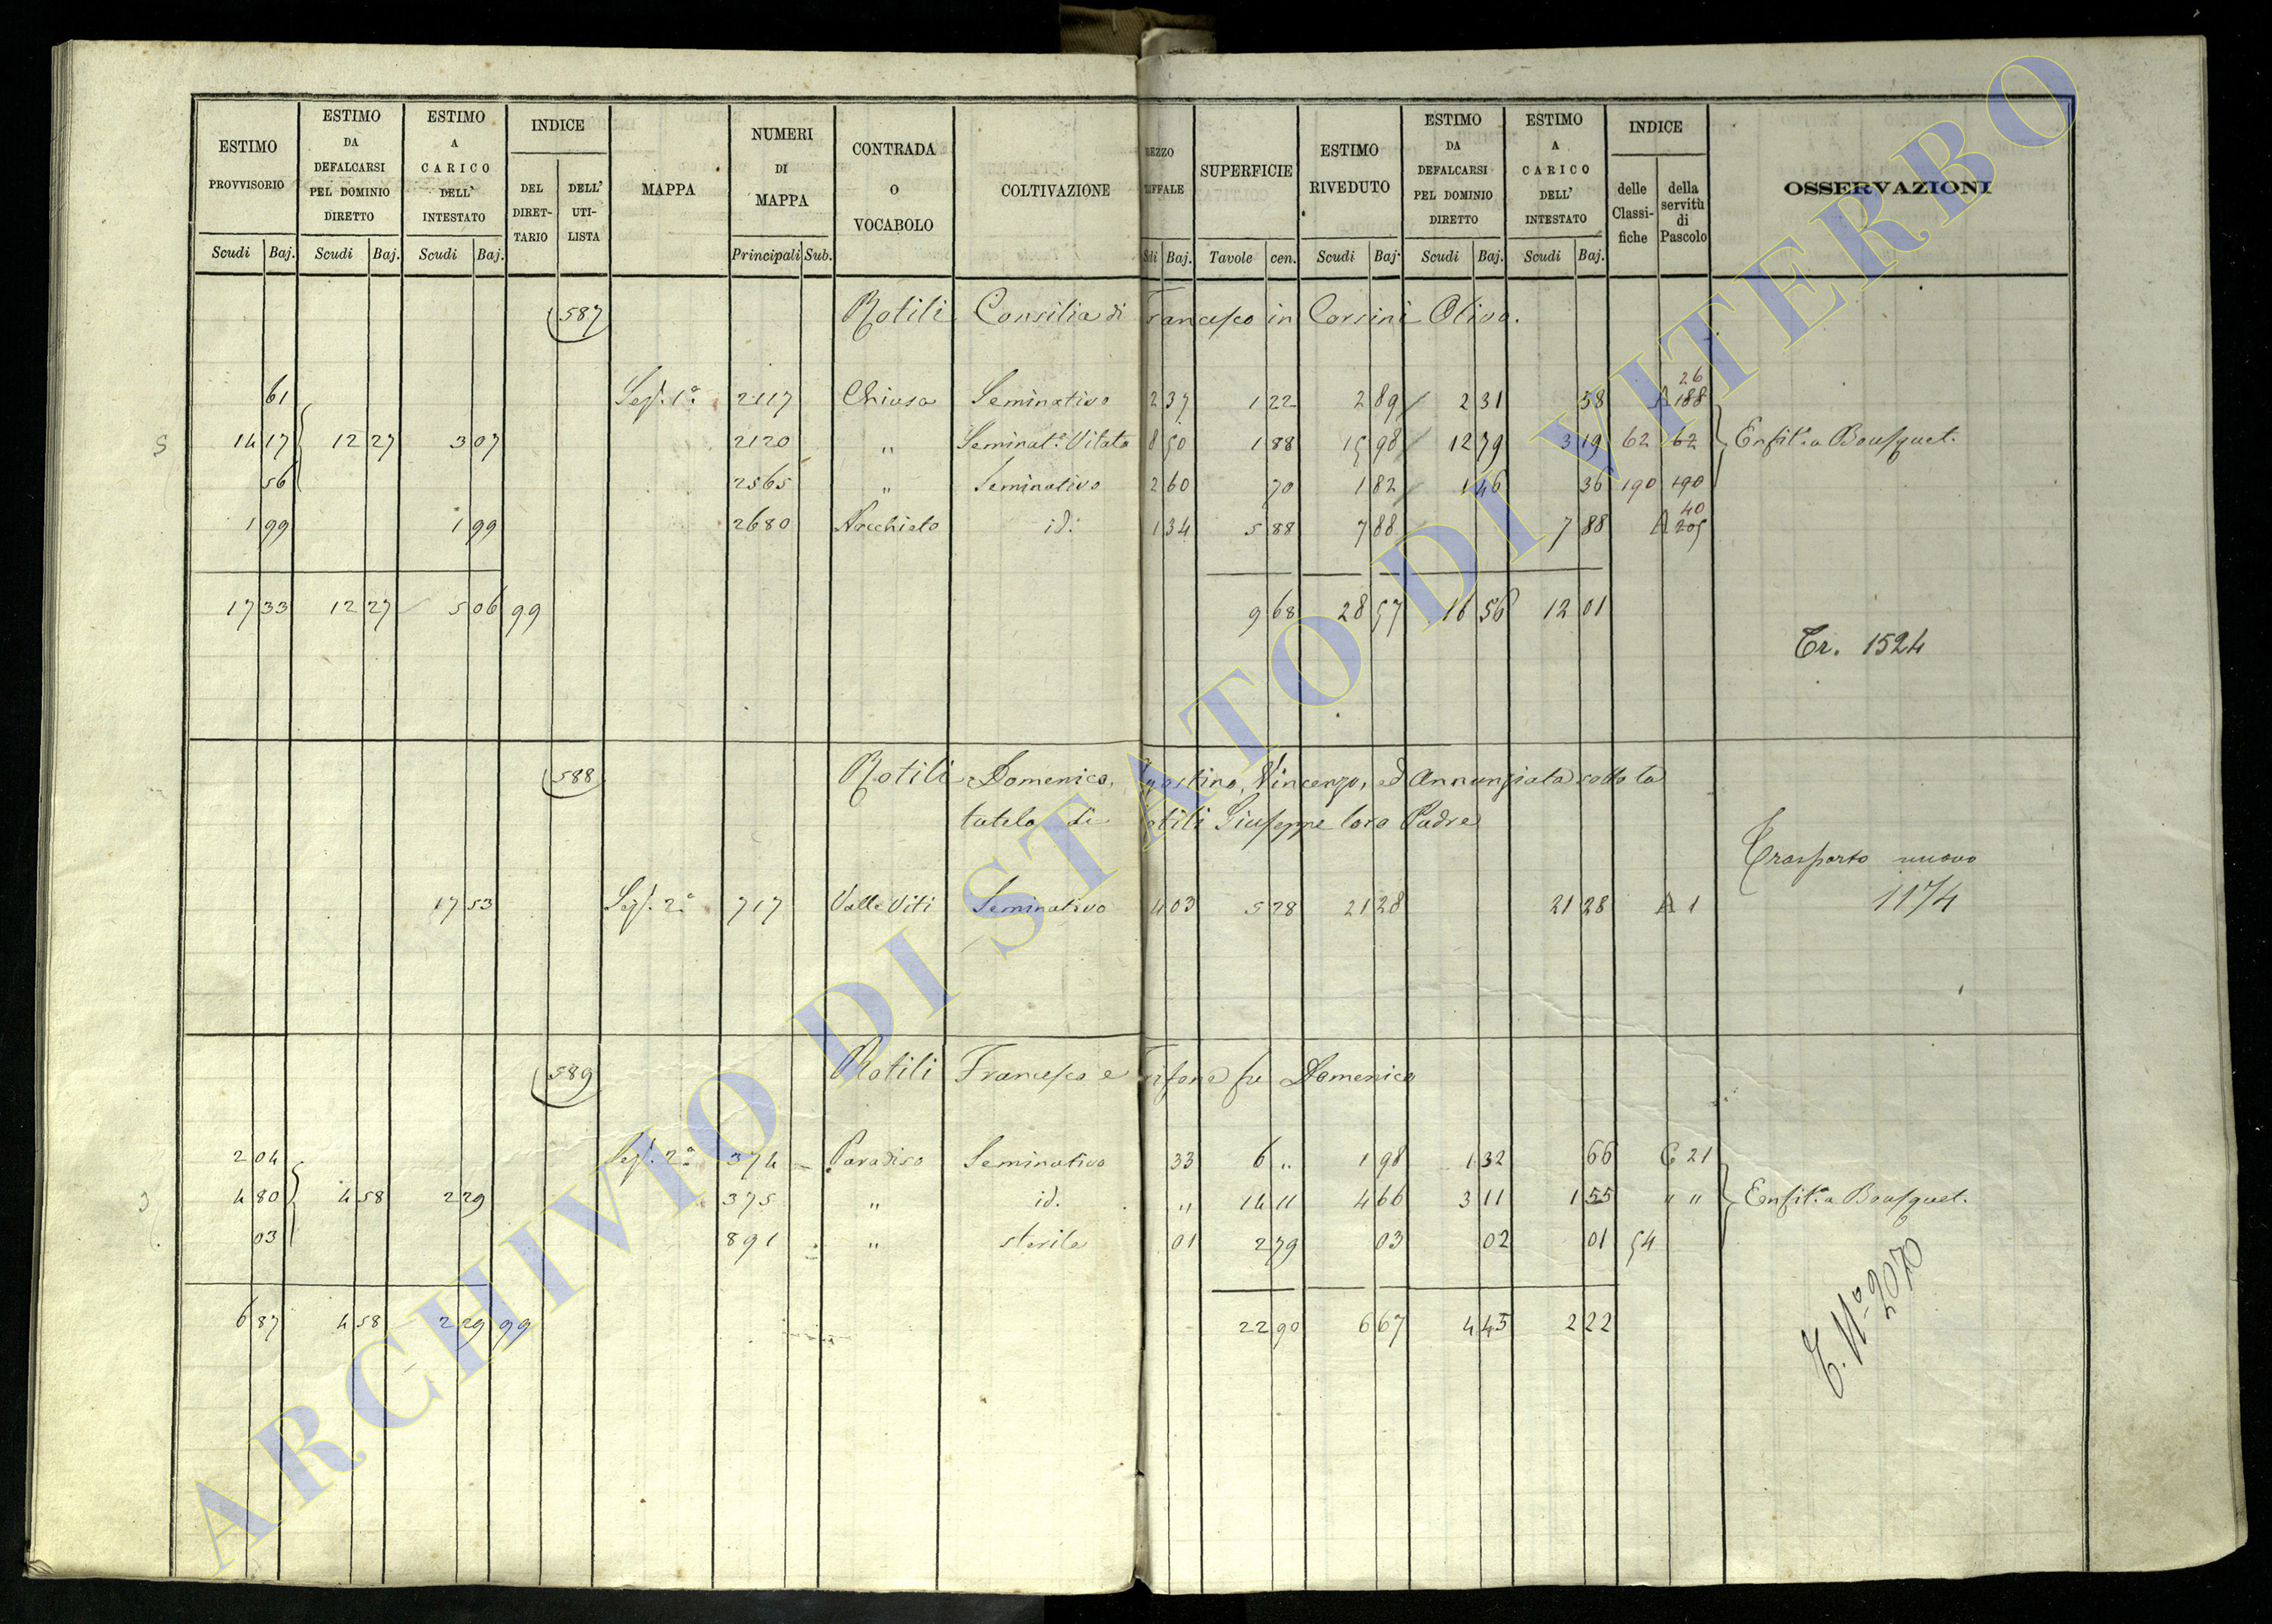 ESTIMO PROVVISORIO Scudi Baj.
ESTIMO DA DEFALCARSI PEL DOMINIO DIRETTO Scudi Baj.
ESTIMO A CARICO DELL' INTESTATO Scudi Baj.
INDICE DEL DIRET- TARIO DELL' UTI- LISTA
MAPPA
NUMERI DI MAPPA Principali Sub.
CONTRADA O VOCABOLO
COLTIVAZIONE
REZZO IFFALE Sdi Baj.
SUPERFICIE Tavole cen.
ESTIMO RIVEDUTO Scudi Baj.
ESTIMO DA DEFALCARSI PEL DOMINIO DIRETTO Scudi Baj.
ESTIMO A CARICO DELL' INTESTATO Scudi Baj.
INDICE delle Classi- fiche della servitù di Pascolo
OSSERVAZIONI
587 Rotili Consilia di Francesco in Corsini Olivo.
26
61 Sez. 1a 2117 Chiusa Seminativo 2 37 1 22 2 89 2 31 58 A 188
14 17 12 27 3 07 2120 " Seminat. Vitato 8 50 1 88 15 98 12 79 3 19 62 62 Enfit. a Bousquet.
56 2565 " Seminativo 2 60 70 1 82 1 46 36 190 190
40
1 99 1 99 2680 Nocchieto id. 1 34 5 88 7 88 7 88 A 205
17 33 12 27 5 06 99 9 68 28 57 16 56 12 01
Tr. 1524
588 Rotili Domenico, Agostino, Vincenzo, ed Annunziata sotto la
tutela di otili Giuseppe loro Padre
Trasporto nuovo
17 53 Sez. 2a 717 Valle Viti Seminativo 4 03 5 28 21 28 21 28 A 1 1174
589 Rotili Francesco e Trifone fu Domenico
2 04 Sez. 2a 374 Paradiso Seminativo 33 6 " 1 98 1 32 66 C 21
3 4 80 4 58 2 29 375 " id. " 14 11 4 66 3 11 1 55 " " Enfit. a Bousquet.
03 891 " sterile 01 2 79 03 02 01 54
6 87 4 58 2 29 99 22 90 6 67 4 45 2 22
T. No 2070
ARCHIVIO DI STATO DI VITERBO